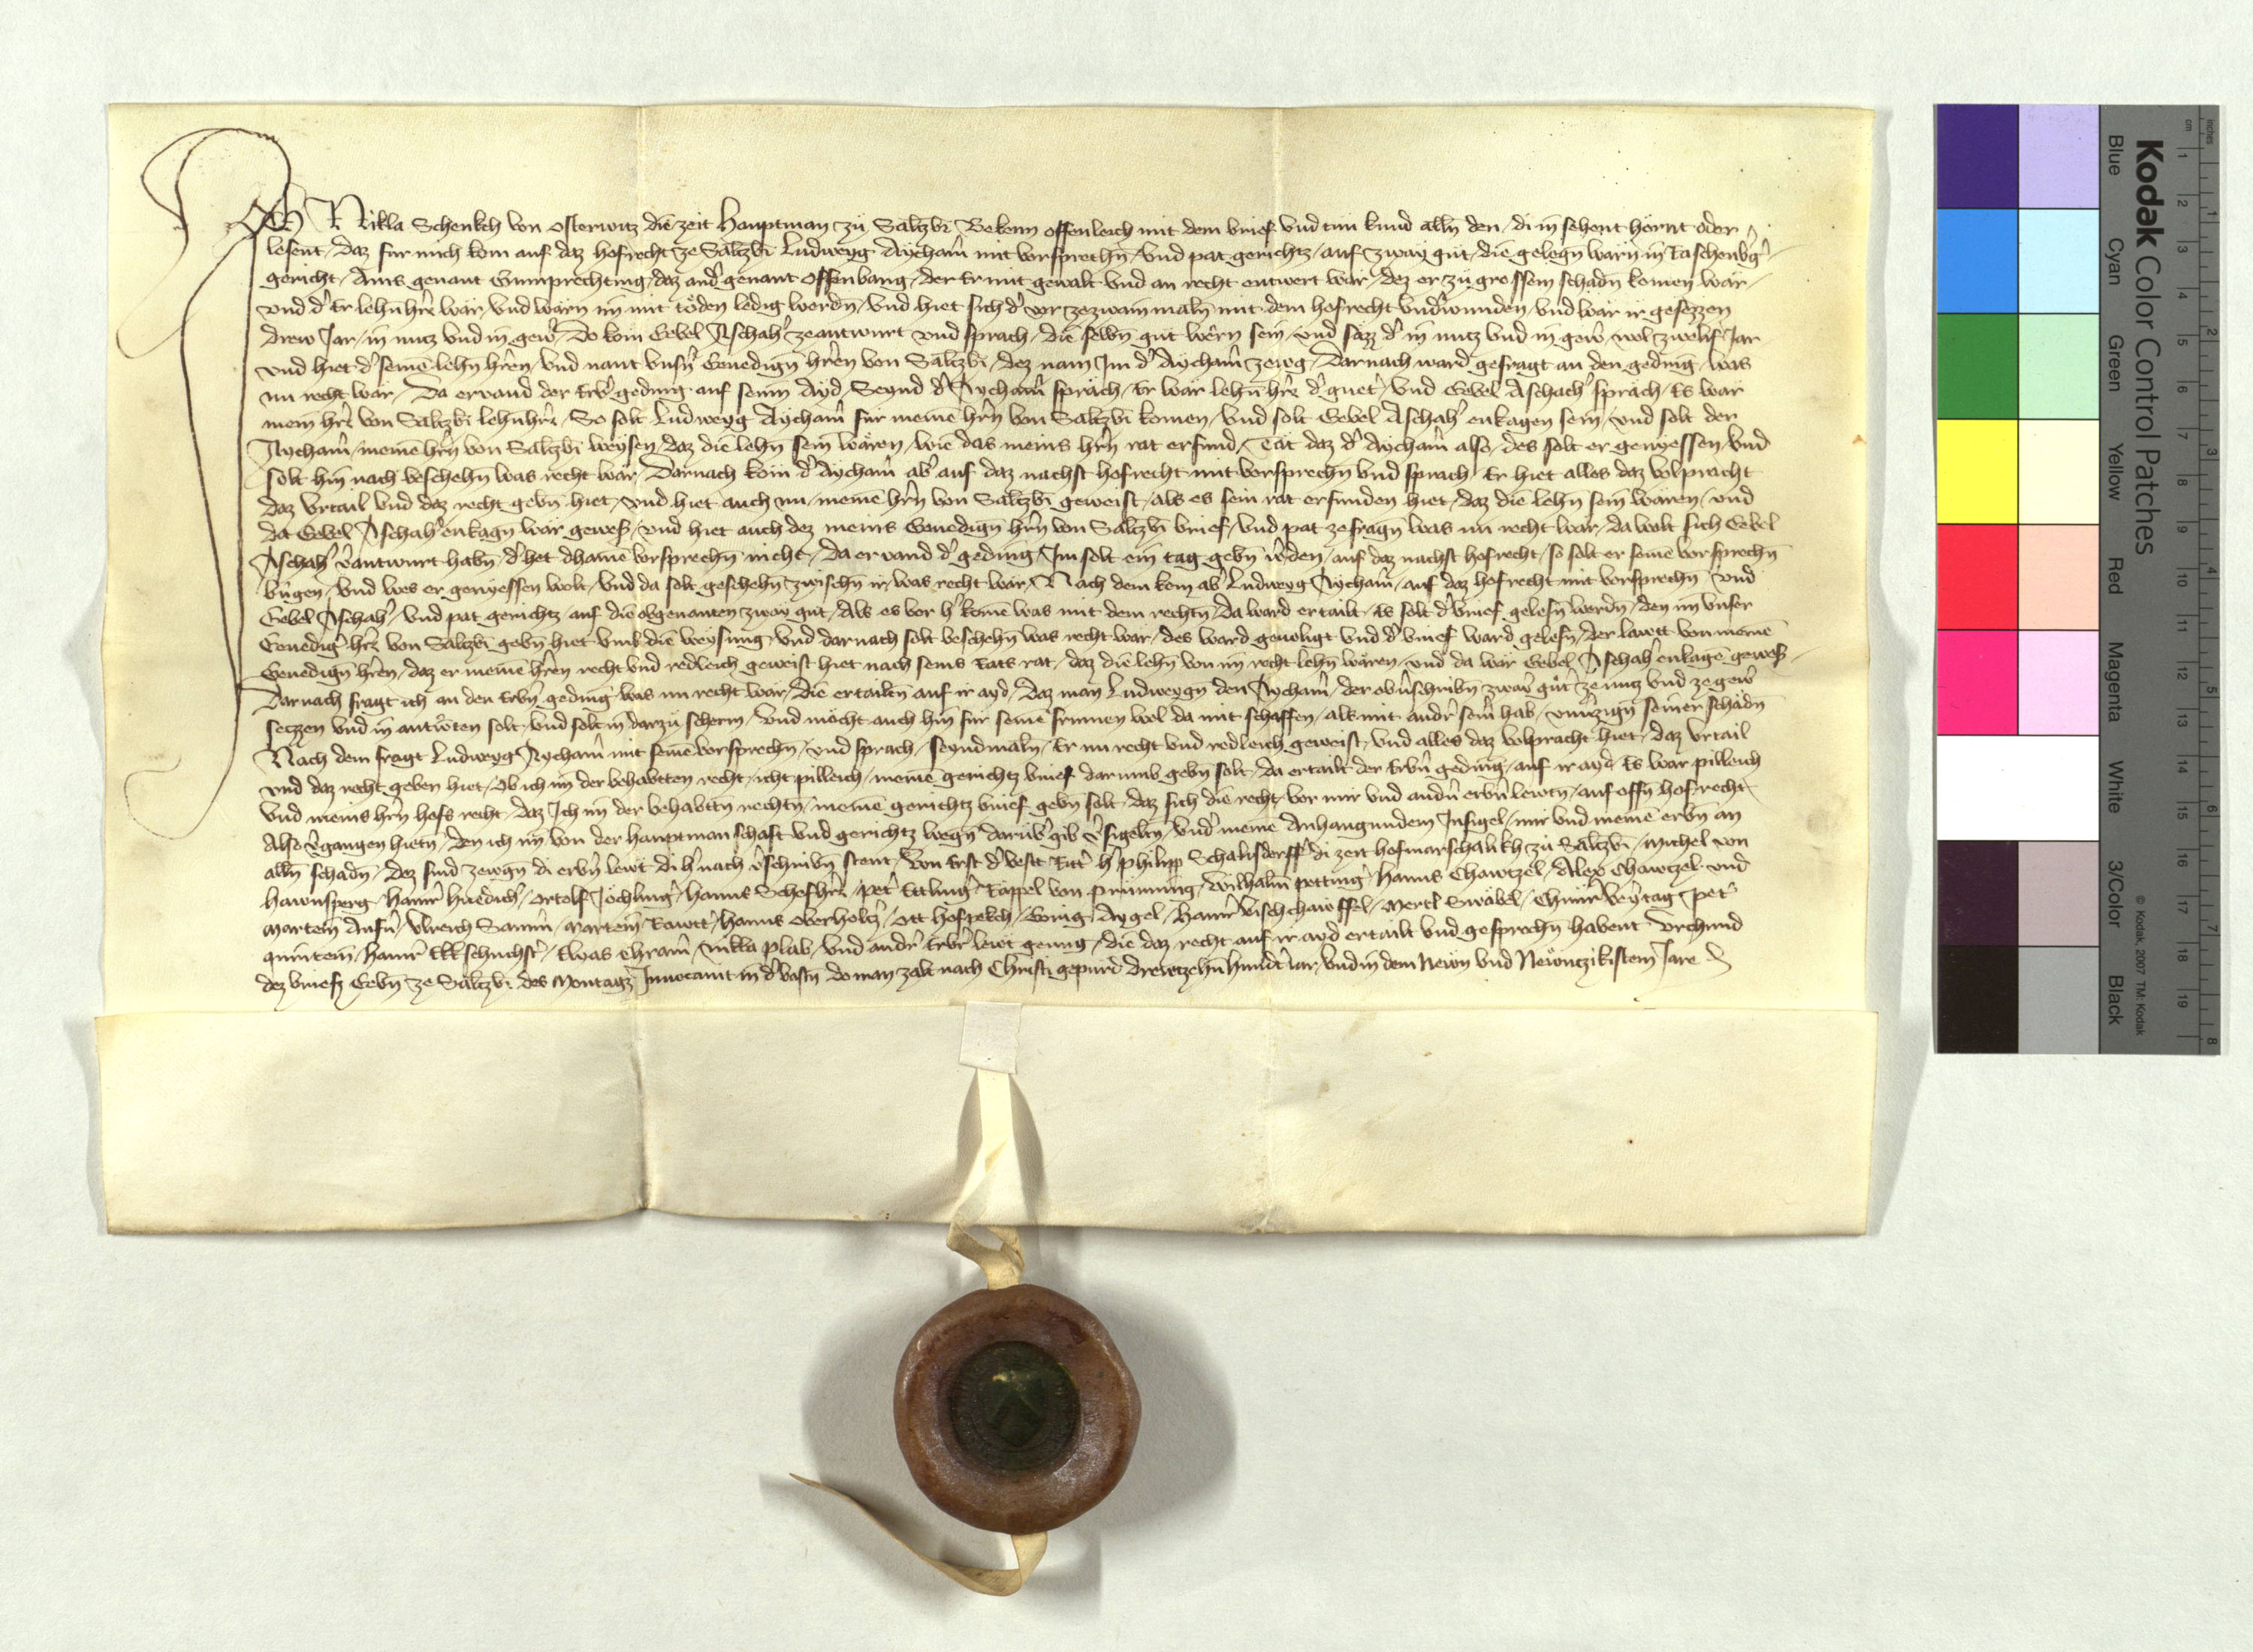 Ich Nikla Schenkch von Osterwitz die zeit Hauptman zů Salczb̄ Bekenn offenleich mit dem brief vnd tůn kund alln̄ den / di in sehent hörnt oder
lesent / daz fur mich kom auf daz hofrecht ze Salczb̄ Ludweyg Aychaim̄ mit vorsprechn̄ / vnd pat gerichtz / auf zway gůt / die gelegn̄ warn̄ in
gericht / Ains genant Gumprechting / daz and̄ genant Offenbang / der Er mit gewalt vnd an recht entwert wär / dez er zů grossem schadn̄ komen wär /
vnd d' Er lehn̄ hr̄r wär / vnd wärn im mit töden ledig wordn̄ / vnd hiet sich d' vor zezwain maln̄ mit dem hofrecht vnd'wunden / vnd wär ir gesezzen
drew Jar / in nutz vnd in gew̄ / Do kom Eebel Aschah' zeantwurt vnd sprach / die selbn̄ gůt wêrn sein / vnd säzz d' in nutz vnd in gew̄ / wol zwelif Jar
vnd hiet d' seinē lehn̄ hr̄en / vnd nant vnsn̄ Genedign̄ hr̄en von Salczb̄ / dez nam Im d' Aycham̄ zewg / Darnach ward gefragt an den geding / was
nu recht wär / Da ervand der Erb' geding auf seinn Ayd / Seynd d' Aycham̄ spräch / Er wär lehn̄ hr̄r d' guet' / vnd Eebel Aschach' spräch / Es wär
mein hr̄r von Salczb̄ lehnhr̄r / So solt Ludweyg Aycham̄ fur meinē hr̄n von Salczb̄ komen / vnd solt Eebel Aschah' enkagen sein / vnd solt der
Aycham̄ / meinē hr̄n von Salczb̄ weysen / daz die lehn̄ sein wären / wie das meins hr̄n rat erfund / Tät daz d' Aycham̄ also / des solt er genyessen / vnd
solt hin nach beschehn̄ was recht wär / Darnach kom d' Aycham̄ ab' auf daz nachst hofrecht mit vorsprechn̄ vnd sprach / Er hiet alles daz volpracht
daz vrtail vnd daz recht gebn̄ hiet / vnd hiet auch nu / meinē hr̄n von Salczb̄ geweist / als es sein rat erfunden hiet / daz die lehn̄ sein wären / vnd
da Eebel Aschah' enkagn̄ wär gewes / vnd hiet auch dez meins Genedign̄ hr̄n von Salczb̄ brief / vnd pat ze fragn̄ was nu recht wär / da wolt sich Eebel
Aschah' v'antwurt habn̄ / d' het dhainē vorsprechn̄ nicht / da ervand d' geding / Im solt ein tag gebn̄ w'den / auf daz nachst hofrecht / so solt er seinē vorsprechn̄
bringen / vnd wes er genyessen wolt / vnd da solt geschehn̄ zwischn̄ ir / was recht wär / Nach dem kom ab' Ludweyg Aycham̄ / auf daz hofrecht mit vorsprechn̄ vnd
Eebel Aschah' / vnd pat gerichtz / auf die obgenanten zway gůt / als es vor h' komē was mit dem rechtn̄ / da ward ertailt / es solt d' brief gelesn̄ werdn̄ / den im vnser
Genedig' hr̄r von Salczb̄ gebn̄ hiet vmb die weysung / vnd darnach solt beschehn̄ was recht wär / des ward gevoligt vnd d' brief ward gelesn̄ / der lawtt von meinē
Genedign̄ hr̄en / daz er meinē hr̄en recht vnd redleich geweist hiet nach seins Rats rat / daz die lehn̄ von im recht lehn̄ wären / vnd da wär Eebel Aschah' enkagē gewes /
Darnach fragt ich an den Erbn̄ geding was nu recht wär / die ertailtn̄ auf ir ayd / Daz man Ludweygn̄ den Aycham̄ / der obn̄schribn̄ zwair gůt' ze nutz vnd ze gew'
seczzen vnd in antw'ten solt / vnd solt in darzů scherm / vnd möcht auch hin fur seinē frumen wol da mit schaffen / als mit andr̄ sein̄ hab / vnu'zign̄ seiner schädn̄
Nach dem fragt Ludweyg Aycham̄ mit seinē vorsprechn̄ / vnd sprach / seyndmaln̄ / Er nu recht vnd redleich geweist / vnd alles daz volpracht hiet / daz vrtail
vnd daz recht geben hiet / Ob ich im der behabtten recht / icht pilleich / meinē gerichtz brief darumb gebn̄ solt / da ertailt der Erb'n geding / auf ir ayd Es wär pilleich
vnd meins hr̄n hofs recht / daz Ich im der behabtn̄ rechtn̄ / meinē gerichtz brief gebn̄ solt / daz sich die recht / vor mir vnd andn̄ erbn̄ lewtn̄ / auf offn̄ hofrecht
Also v'gangen hietn̄ / den ich im von der hauptmanschaft vnd gerichtz wegn̄ darub' gib v'sigeltn̄ / vnd' meinē Anhangundem Insigel / mir vnd meinē erbn̄ an
alln̄ schadn̄ / Dez sind zewgn̄ di erbn̄ lewt di h' nach v'schribn̄ stent / Von Erst d' vestt Ritt' h' philipp Schalisdorff' di zeit hofmarschalikh zů Salczb̄ / Michel von
hawnsperg / Hainr̄ hůedich' / Ortolf Jöchling' / Hanns Schofhr̄r / Pet' Ettling' / Käppel von prunning / Wilhalm petting' / Hanns Chawtzel / Alex Chawtzel / vnd
Martein Ansn̄ / Vlreich Samm̄ / Martein Rawtt' / Hanns Oberholtz' / Ott hofpekch / Aygel / Hainr̄ vischchaw ffel / Mertl Swäbel / Veyrtag Pet'
Hainr̄ / Elyas Chram̄ / Nikla plab / vnd andr̄ Erb'r lewt genug / die daz recht auf ir ayd ertailt vnd gesprochn̄ habent Vrchund
dez briefs Gebn̄ ze Salczb̄ des Montagz Inuocauit in d' vastn̄ do man zalt nach Christi gepurd drewtzehn̄ hundt iar / vnd in dem Newn vnd Newntzikistem Jare
Kodak Color Control Patches
Blue
Cyan
Green
Yellow
Red
Magenta
White
3/Color
Black
© Kodak, 2007 TM: Kodak
inches
cm
1 2 3 4 5 6 7 8 9 10 11 12 13 14 15 16 17 18 19
1 2 3 4 5 6 7 8